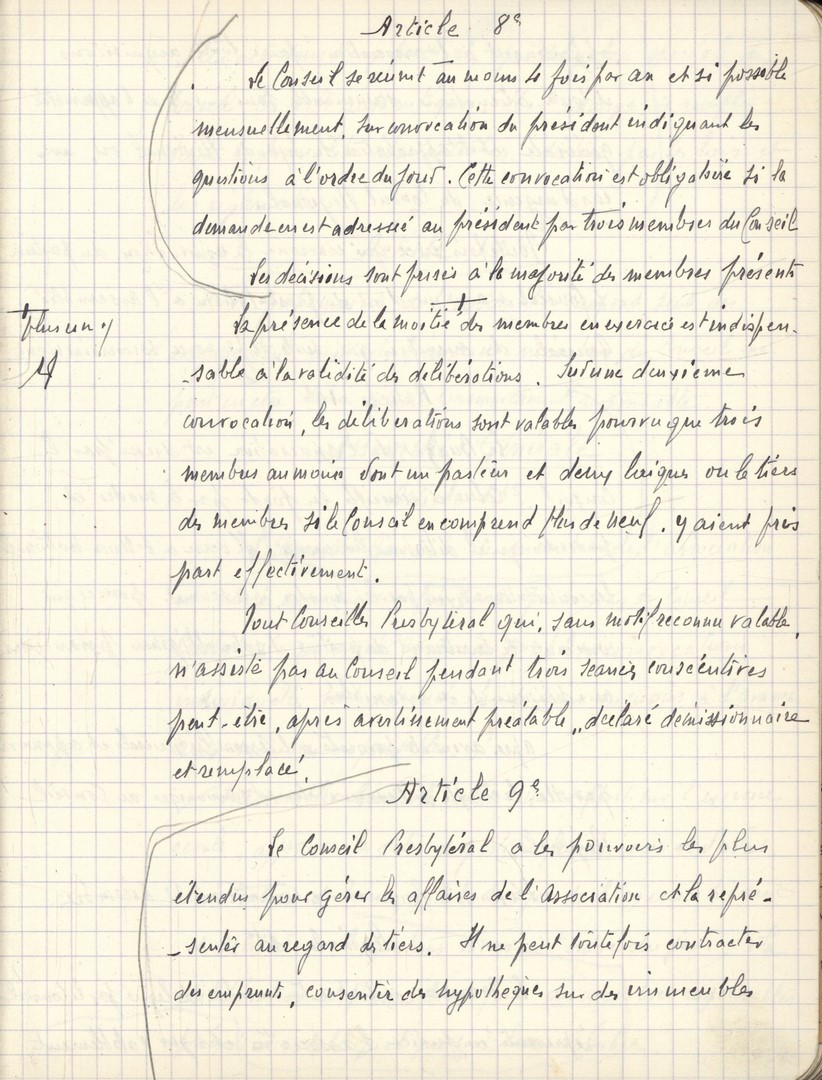 Article 8e
Le Conseil se réunit au moins 4 fois par an et si possible
mensuellement, sur convocation du président indiquant les
questions à l'ordre du jour. Cette convocation est obligatoire si la
demande en est adressée au président par trois membres du Conseil
Les décisions sont prises à la majorité des membres présents
La présence de la moitié + des membres en exercice est indispen-
+ plus un
-sable à la validité des délibérations. Sur une deuxième
convocation, les délibérations sont valables pourvu que trois
membres au moins dont un pasteur et deux laïques ou le tiers
des membres si le Conseil en comprend plus de neuf, y aient pris
part effectivement.
Tout Conseiller Presbytéral qui, sans motif reconnu valable,
n'assiste pas au Conseil pendant trois séances consécutives
peut-être, après avertissement préalable, déclaré démissionnaire
et remplacé.
Article 9e
Le Conseil Presbytéral a les pouvoirs les plus
étendus pour gérer les affaires de l'Association et la repré-
-senter au regard des tiers. Il ne peut toutefois contracter
des emprunts, consentir des hypothèques sur des immeubles